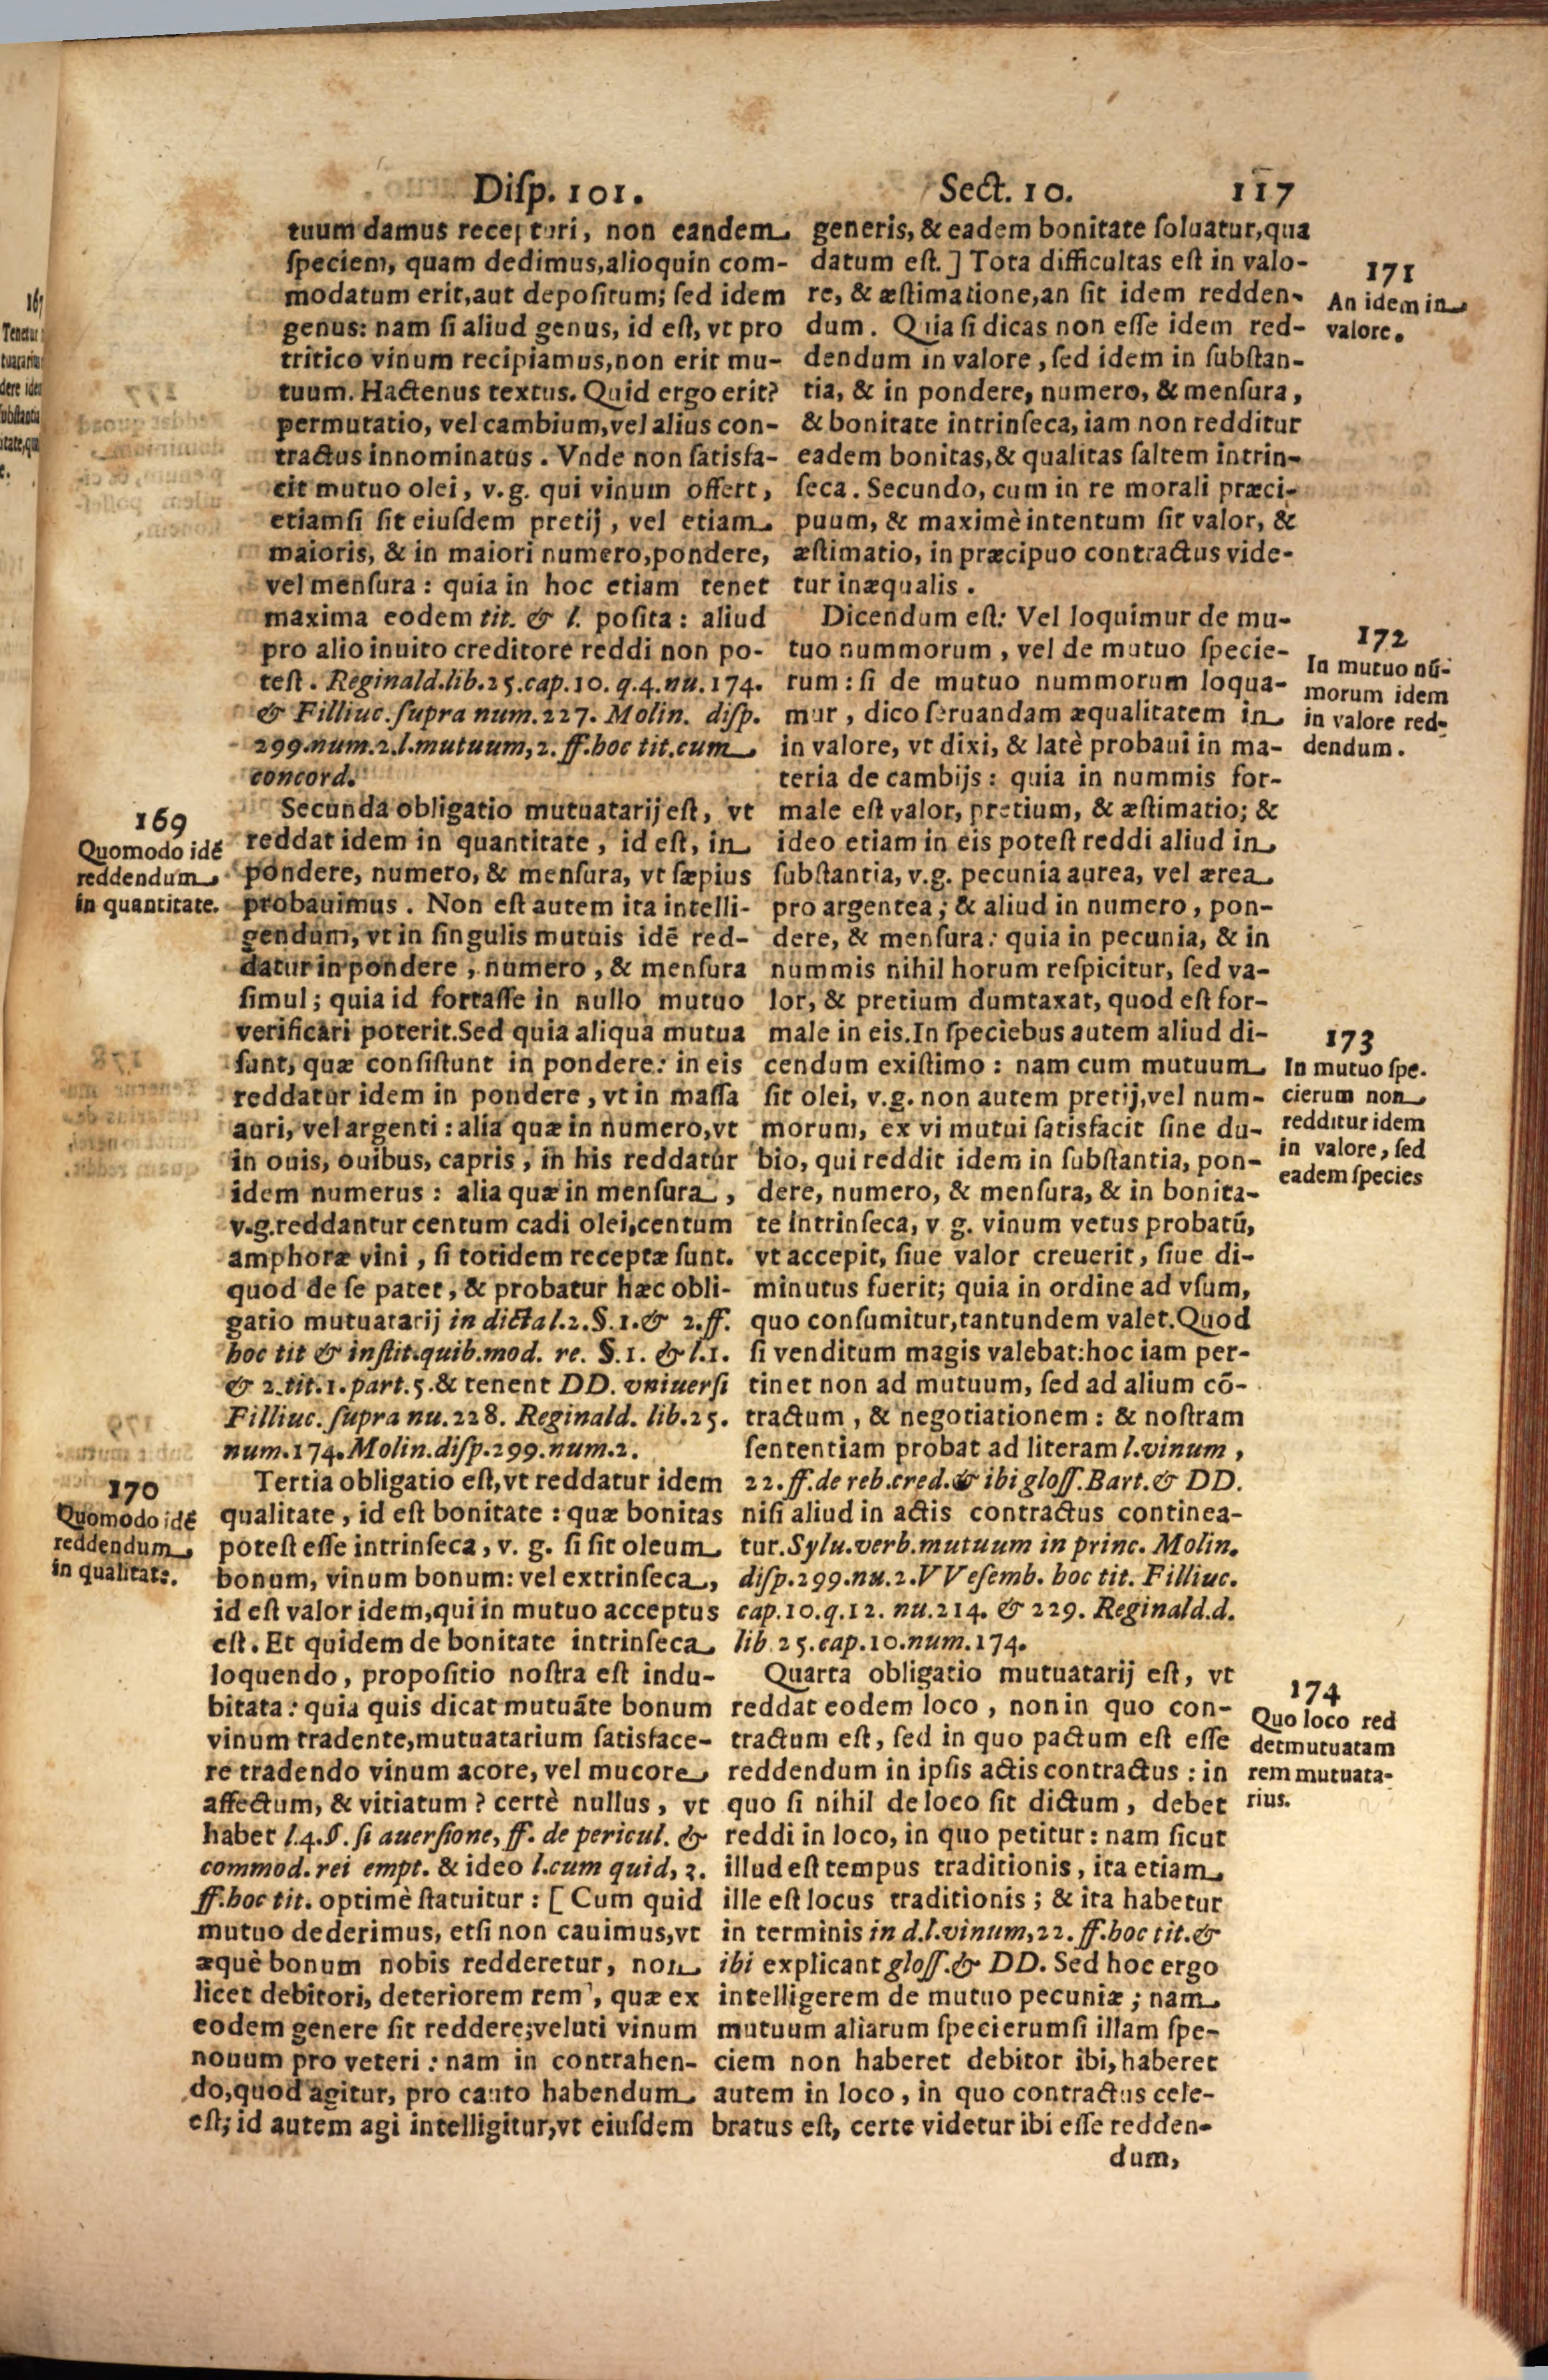 Disp. 101. Sect. 10. 117
tuum damus recepturi, non eandem
speciem, quam dedimus, alioquin com-
modatum erit, aut depositum; sed idem
genus: nam si aliud genus, id est, vt pro
tritico vinum recipiamus, non erit mu-
tuum. Hactenus textus. Quid ergo erit?
permutatio, vel cambium, vel alius con-
tractus innominatus. Vnde non satisfa-
cit mutuo olei, v.g. qui vinum offert,
etiamsi sit eiusdem pretij, vel etiam
maioris, & in maiori numero, pondere,
vel mensura: quia in hoc etiam tenet
maxima eodem tit. & l. posita: aliud
pro alio inuito creditore reddi non po-
test. Reginald.lib.25.cap.10. q.4.nu.174.
& Filliuc. supra num.227. Molin. disp.
299.num.2.l.mutuum,2. ff.hoc tit.cum
concord.
169
Quomodo idē
reddendum
in quantitate.
Secunda obligatio mutuatarij est, vt
reddat idem in quantitate, id est, in
pondere, numero, & mensura, vt sæpius
probauimus. Non est autem ita intelli-
gendum, vt in singulis mutuis idē red-
datur in pondere, numero, & mensura
simul; quia id fortasse in nullo mutuo
verificari poterit. Sed quia aliqua mutua
sunt, quæ consistunt in pondere: in eis
reddatur idem in pondere, vt in massa
auri, vel argenti: alia quæ in numero, vt
in ouis, ouibus, capris, in his reddatur
idem numerus: alia quæ in mensura,
v.g. reddantur centum cadi olei, centum
amphoræ vini, si totidem receptæ sunt.
quod de se patet, & probatur hæc obli-
gatio mutuatarij in dicta l.2.§.1.& 2.ff.
hoc tit & instit.quib.mod. re. §.1. & l.1.
& 2.tit.1.part.5.& tenent DD. vniuersi
Filliuc. supra nu.228. Reginald. lib.25.
num.174.Molin.disp.299.num.2.
170
Quomodo idē
reddendum
in qualitate.
Tertia obligatio est, vt reddatur idem
qualitate, id est bonitate: quæ bonitas
potest esse intrinseca, v. g. si sit oleum
bonum, vinum bonum: vel extrinseca,
id est valor idem, qui in mutuo acceptus
est. Et quidem de bonitate intrinseca
loquendo, propositio nostra est indu-
bitata: quia quis dicat mutuāte bonum
vinum tradente, mutuatarium satisface-
re tradendo vinum acore, vel mucore
affectum, & vitiatum? certè nullus, vt
habet l.4.§. si auersione, ff. de pericul. &
commod. rei empt. & ideo l.cum quid, 3.
ff.hoc tit. optimè statuitur: [Cum quid
mutuo dederimus, etsi non cauimus, vt
æquè bonum nobis redderetur, non
licet debitori, deteriorem rem, quæ ex
eodem genere sit reddere; veluti vinum
nouum pro veteri: nam in contrahen-
do, quod agitur, pro cauto habendum
est; id autem agi intelligitur, vt eiusdem
generis, & eadem bonitate soluatur, qua
datum est.] Tota difficultas est in valo-
re, & æstimatione, an sit idem redden-
dum. Quia si dicas non esse idem red-
dendum in valore, sed idem in substan-
tia, & in pondere, numero, & mensura,
& bonitate intrinseca, iam non redditur
eadem bonitas, & qualitas saltem intrin-
seca. Secundo, cum in re morali præci-
puum, & maximè intentum sit valor, &
æstimatio, in præcipuo contractus vide-
tur inæqualis.
171
An idem in
valore.
Dicendum est: Vel loquimur de mu-
tuo nummorum, vel de mutuo specie-
rum: si de mutuo nummorum loqua-
mur, dico seruandam æqualitatem in
in valore, vt dixi, & latè probaui in ma-
teria de cambijs: quia in nummis for-
male est valor, pretium, & æstimatio; &
ideo etiam in eis potest reddi aliud in
substantia, v.g. pecunia aurea, vel ærea
pro argentea; & aliud in numero, pon-
dere, & mensura: quia in pecunia, & in
nummis nihil horum respicitur, sed va-
lor, & pretium dumtaxat, quod est for-
male in eis. In speciebus autem aliud di-
cendum existimo: nam cum mutuum
sit olei, v.g. non autem pretij, vel num-
morum, ex vi mutui satisfacit sine du-
bio, qui reddit idem in substantia, pon-
dere, numero, & mensura, & in bonita-
te intrinseca, v g. vinum vetus probatū,
vt accepit, siue valor creuerit, siue di-
minutus fuerit; quia in ordine ad vsum,
quo consumitur, tantundem valet. Quod
si venditum magis valebat: hoc iam per-
tinet non ad mutuum, sed ad alium cō-
tractum, & negotiationem: & nostram
sententiam probat ad literam l.vinum,
22.ff.de reb.cred.& ibi gloss.Bart.& DD.
nisi aliud in actis contractus continea-
tur. Sylu.verb.mutuum in princ. Molin.
disp.299.nu.2.VVesemb. hoc tit. Filliuc.
cap.10.q.12. nu.214. & 229. Reginald.d.
lib 25.cap.10.num.174.
172
In mutuo nū-
morum idem
in valore red-
dendum.
173
In mutuo spe-
cierum non
redditur idem
in valore, sed
eadem species
Quarta obligatio mutuatarij est, vt
reddat eodem loco, non in quo con-
tractum est, sed in quo pactum est esse
reddendum in ipsis actis contractus: in
quo si nihil de loco sit dictum, debet
reddi in loco, in quo petitur: nam sicut
illud est tempus traditionis, ita etiam
ille est locus traditionis; & ita habetur
in terminis in d.l.vinum,22. ff.hoc tit.&
ibi explicant gloss.& DD. Sed hoc ergo
intelligerem de mutuo pecuniæ; nam
mutuum aliarum specierum si illam spe-
ciem non haberet debitor ibi, haberet
autem in loco, in quo contractus cele-
bratus est, certe videtur ibi esse redden-
dum,
174
Quo loco red
det mutuatam
rem mutuata-
rius.